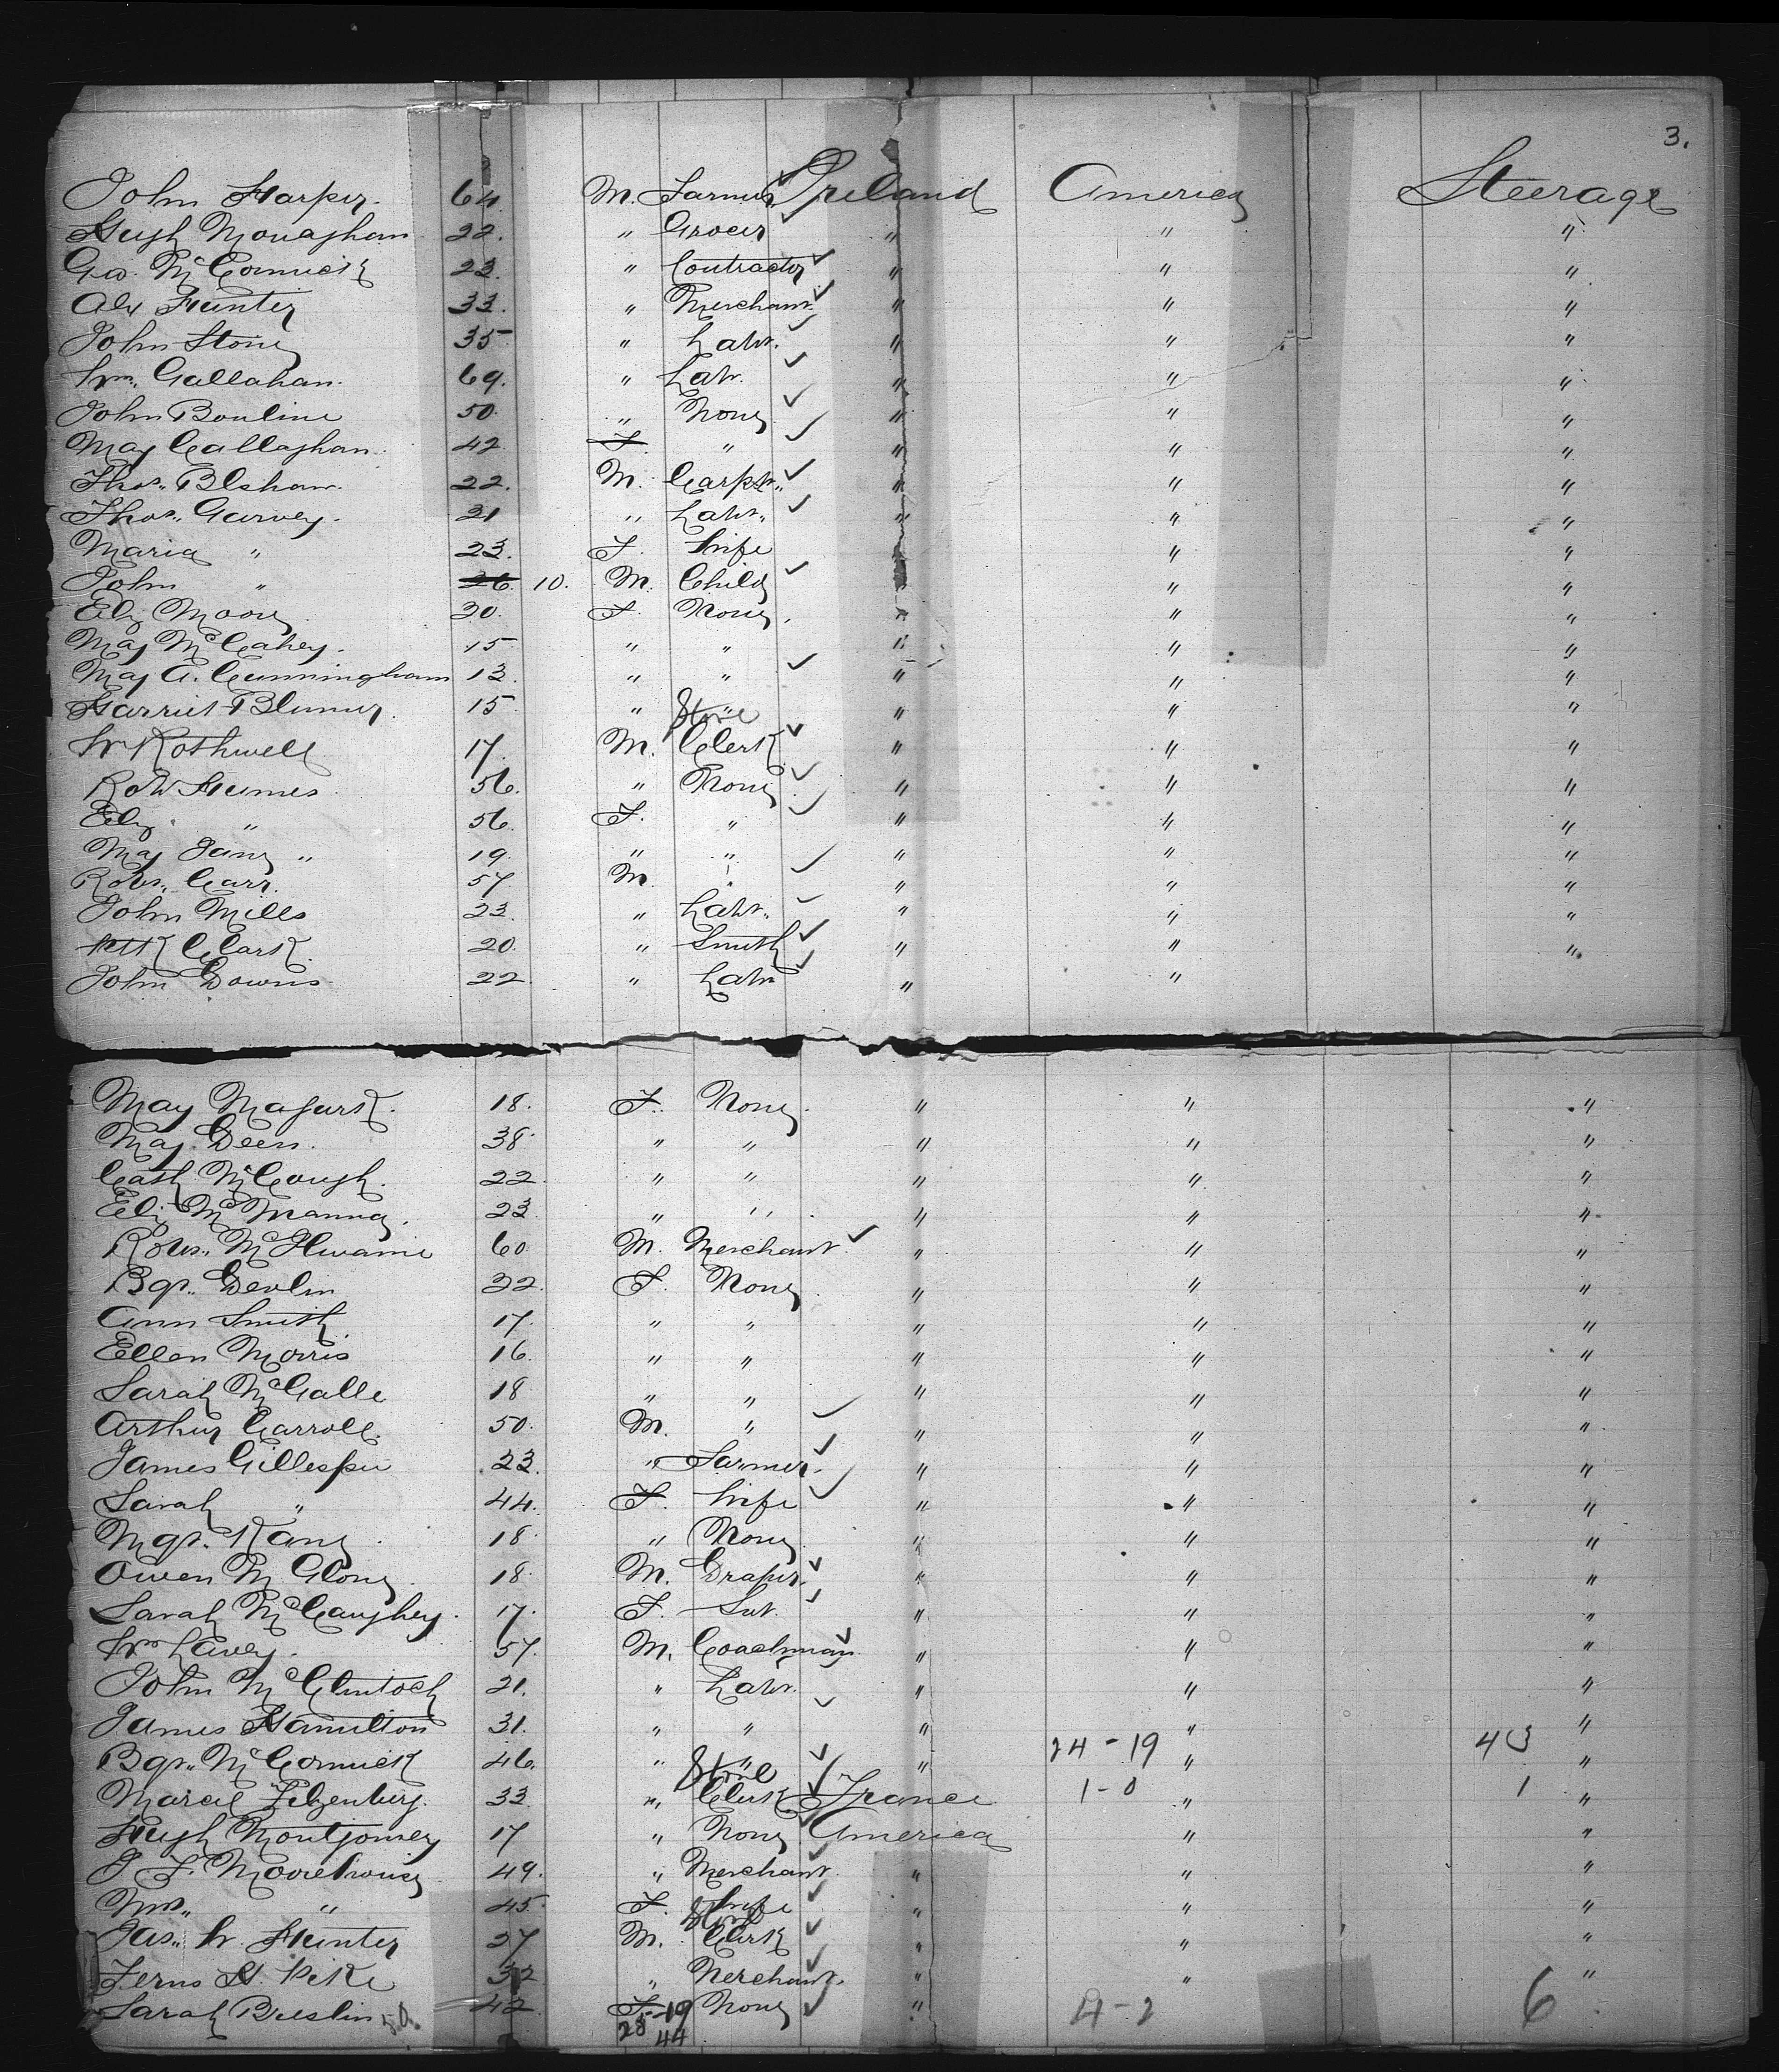 3.
John Harper. 64 M. Farmer Ireland America Steerage
Hugh Monaghan 22. " Grocer " " "
Geo. McCormick 23. " Contractor " " "
Alex Hunter 33. " Merchant " " "
John Stone 35 " Labr. " " "
Wm. Gallahan. 69. " Labr. " " "
John Bouline 50. " None " " "
May Callaghan. 42 F. " " " "
Thos. Blshaw. 22. M. Carptr. " " "
Thos. Garvey. 31 " Labr. " " "
Maria " 23. F. Wife " " "
John " 26. 10. M. Child " " "
Eliz Moore 30. F. None. " " "
May McCahey. 15 " " " " "
May A. Cunningham 13. " " " " "
Harriet Blumer. 15 " " " " "
W Rothwell 17. M. Store Clerk " " "
Robt Humes 56. " None " " "
Eliz " 56. F. " " " "
May Jane " 19. " " " " "
Robt. Carr. 57. M. " " " "
John Mills 23. " Labr. " " "
Patk Clark. 20. " Smith " " "
John Downs 22 " Labr " "
May Magurk. 18. F. None. " " "
May Deen. 38. " " " " "
Cath McGough. 22 " " " " "
Eliz McManna. 23. " " " " "
Robt. McIlwaine 60. M. Merchant. " " "
Bgt. Devlin 32. F. None. " " "
Ann Smith 17. " " " " "
Ellen Morris 16. " " " " "
Sarah McGalle 18 " " " " "
Arthur Carroll. 50. M. " " " "
James Gillespie 23. " Farmer. " " "
Sarah " 44. F. Wife " " "
Mgt. Kane 18. " None " " "
Owen McGlone 18. M. Draper. " " "
Sarah McCaughey. 17. F. Svt. " " "
Wm Lavey. 57. M. Coachman " " "
John McClintock 21. " Labr. " " "
James Hamilton 31. " " " " "
Bgt. McCormick 46. " " " 24-19 " 43 "
Marcel Felzenberg. 33 " Store Clerk France 1-0 " 1 "
Hugh Montgomery 17 " None America " "
J F. Moorehouse 49. " Merchant. " " "
Mrs. " 45. F. Wife " " "
Jas. W. Hunter 27 M. Store Clerk " " "
Ferns H. Pike 32 " Merchant. " " "
Sarah Breslin 42. F. None " 4-2 6
28 19
44